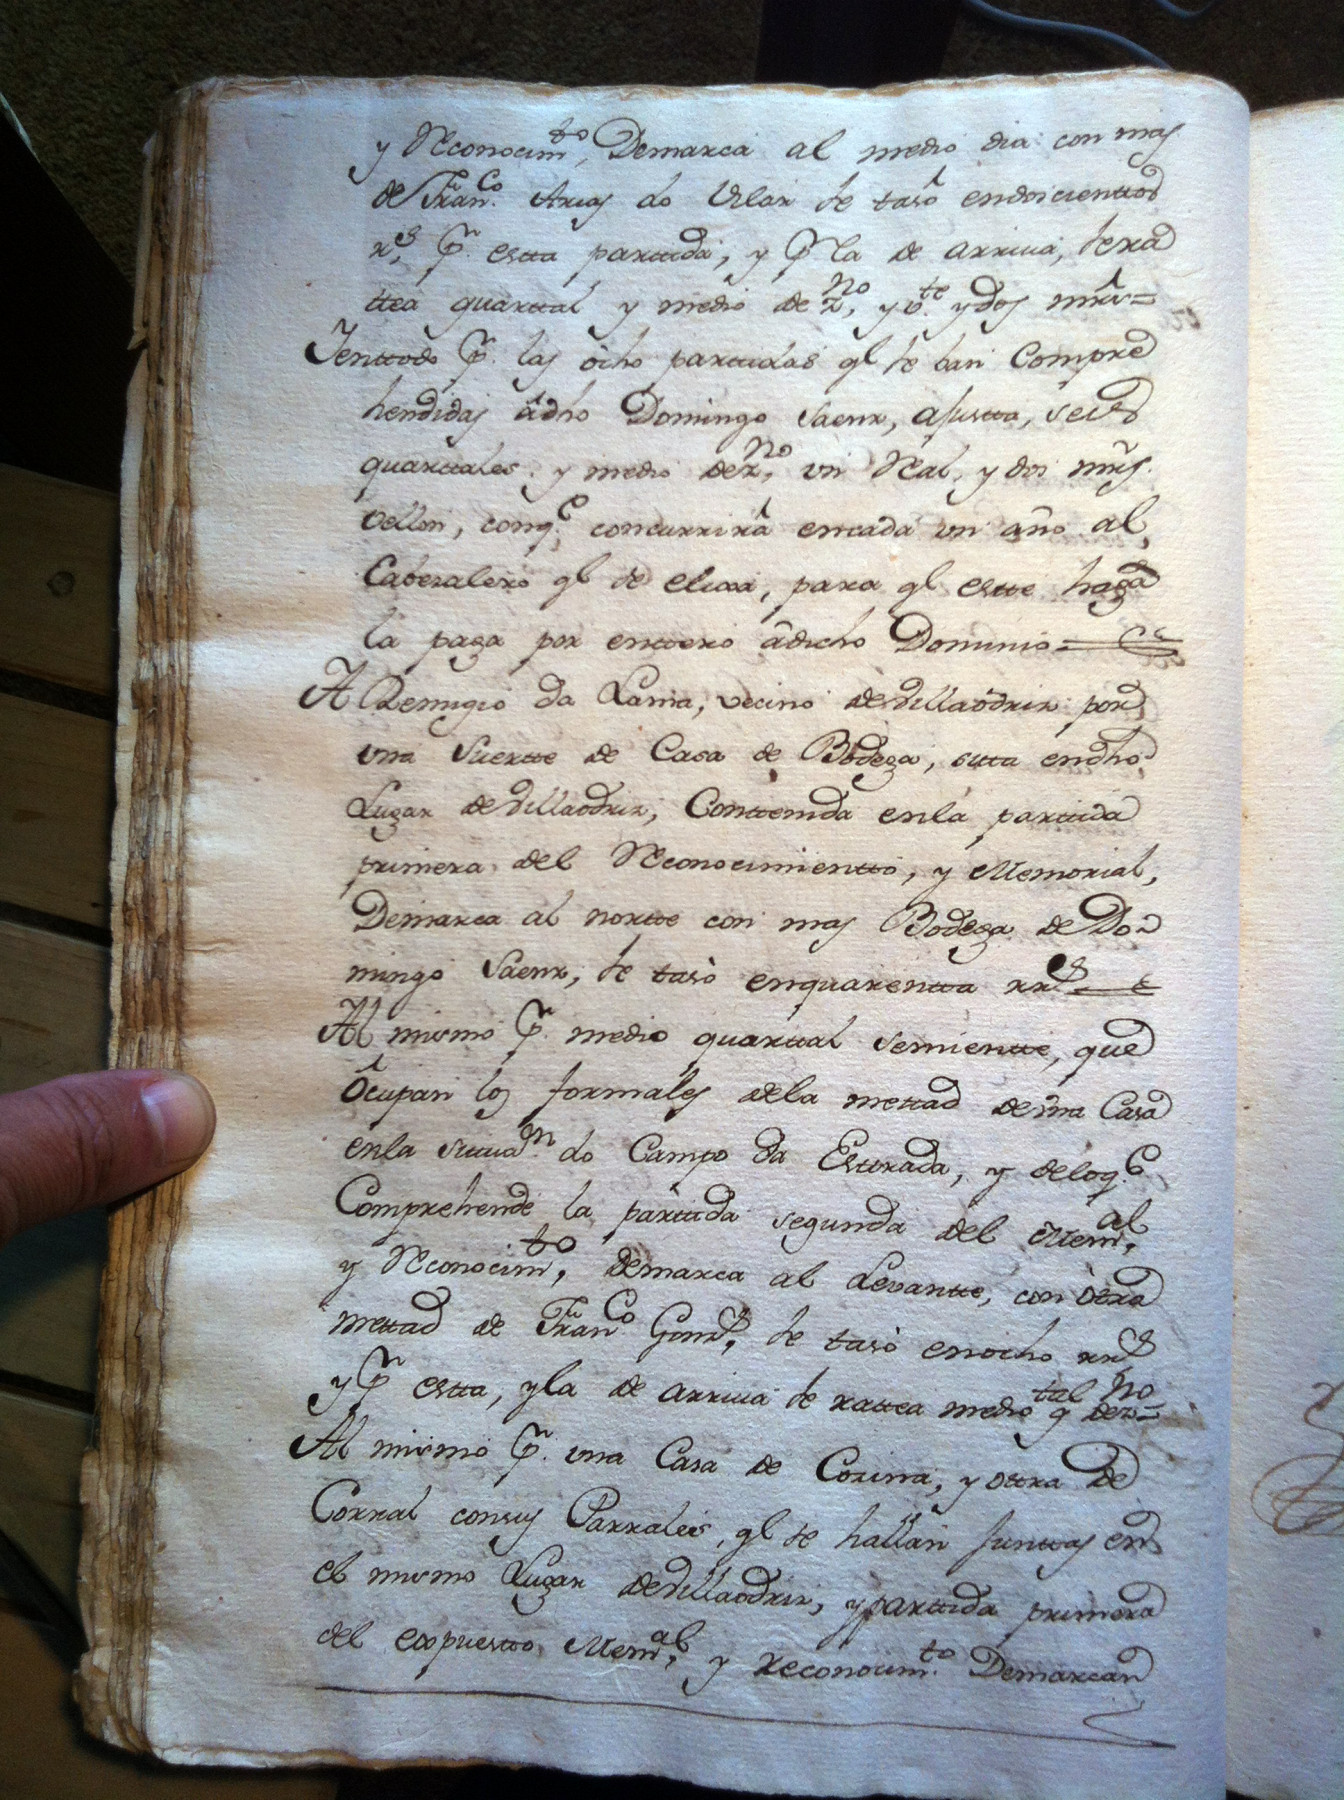 y Reconocim.to, Demarca al medio dia con mas
de Fran.co Arias do Vilar se tasò endoscienttos
r.s, p.r estta parttida, y p.r la de arriva, se ra
ttea quarttal y medio de z.no, y v.te y dos mrâv=
Ienttodo p.r las ôcho parttidas q.l se ban Compre
hendidas âdho Domingo Saenz, ajustta, seis
quarttales y medio dez.no, un Real, y dos mr̃s.
vellon, conq.e, concurrirâ encada un año al,
Cabezalero q.l se elixa, para q.l estte haga
la paga por enttero âdicho Dominio =
A Remigio da Lama, vecino de Villaôdrir por
una Suertte de Casa de Bodega, sitta endho
Lugar de Villaodrir, Conttenida enla parttida
primera del Reconocimientto, y Memorial,
Demarca al nortte con mas Bodega de Do=
mingo Saenz, se tasò enquarentta rr.s
Al mismo p.r medio quarttal semientte, que
Ôcupan los formales dela mettad de una Casa
enla situa.on do Campo da Esttrada, y deloq.e
Comprehende la parttida segunda del Mem.al,
y Reconocim.to, demarca al Levantte, con òtra
mettad de Fran.co Gonz.s, se tasò enocho rr.s
y p.r estta, y la de arriva se rattea medio q.tal dez.no=
Al mismo p.r una Casa de Cozina, y ottra de
Corral consus Parrales, q.l se hallan Junttas en
el mismo Lugar de Villaodrir, y parttida primera
del expuestto Mem.al, y reconocim.to Demarcan